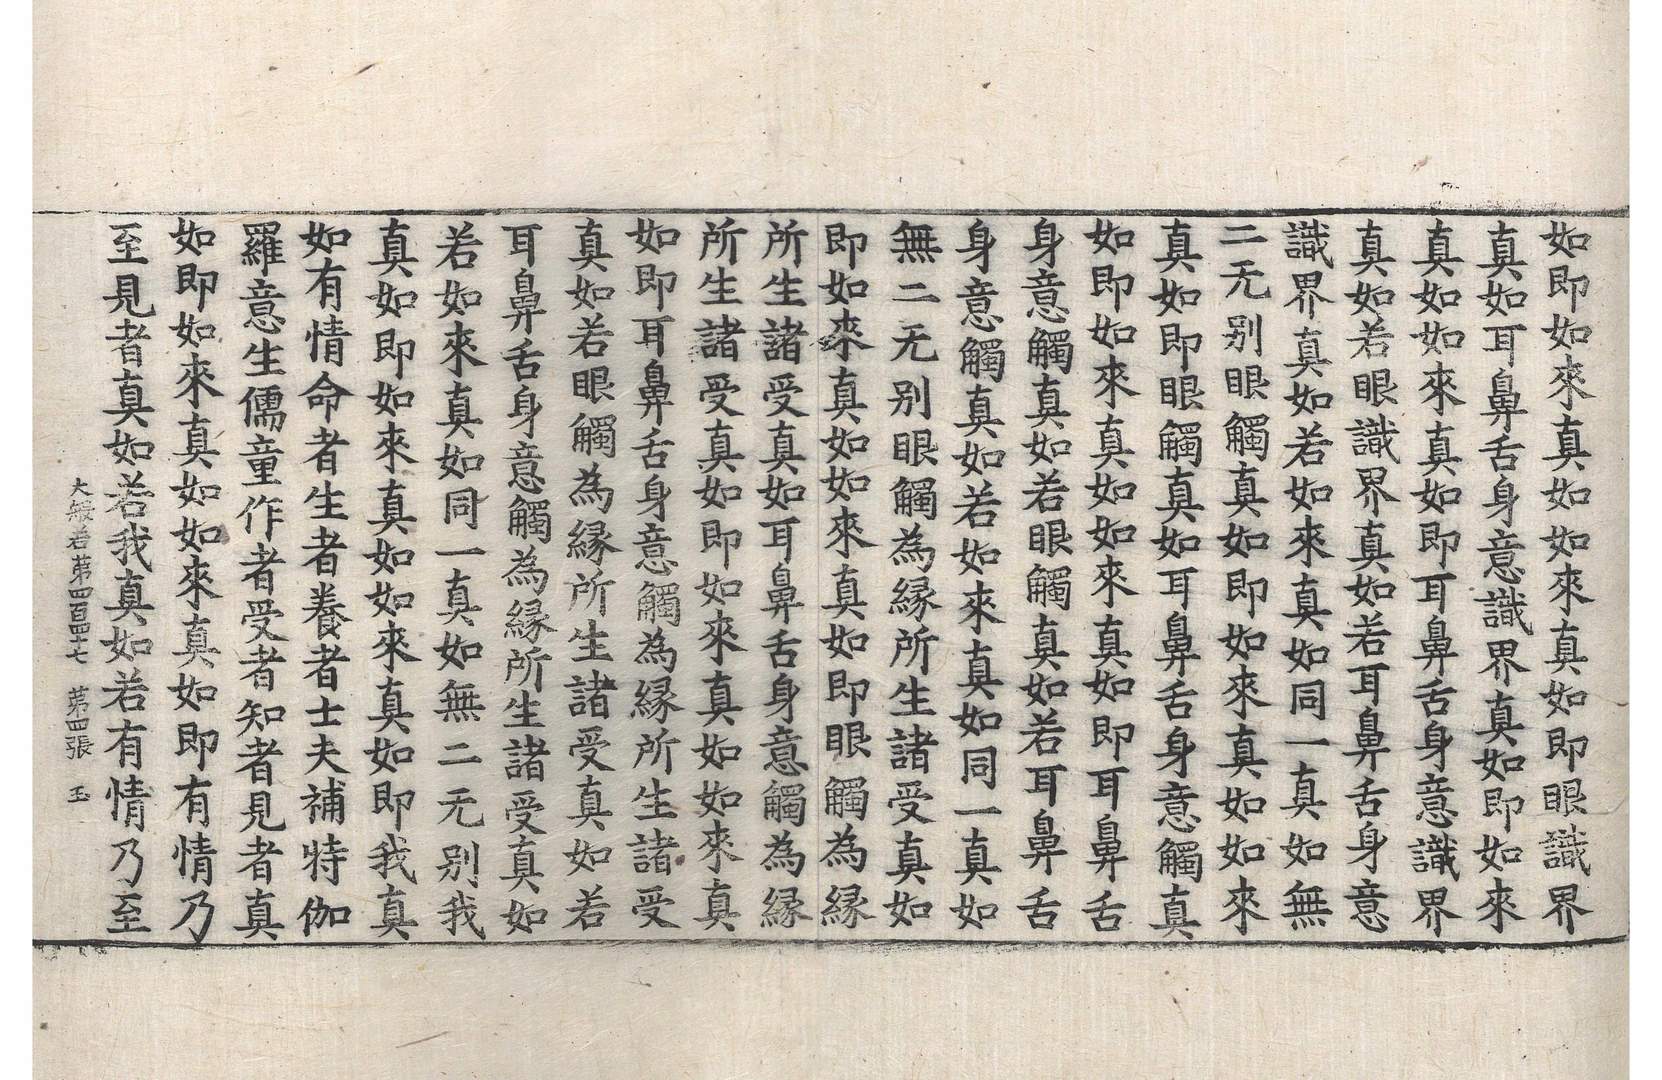 如即如來真如如來真如即眼識界
真如耳鼻舌身意識界真如即如來
真如如來真如即耳鼻舌身意識界
真如若眼識界真如若耳鼻舌身意
識界真如若如來真如同一真如無
二无别眼觸真如即如來真如如來
真如即眼觸真如耳鼻舌身意觸真
如即如來真如如來真如即耳鼻舌
身意觸真如若眼觸真如若耳鼻舌
身意觸真如若如來真如同一真如
無二无别眼觸為緣所生諸受真如
即如來真如如來真如即眼觸為緣
所生諸受真如耳鼻舌身意觸為緣
所生諸受真如即如來真如如來真
如即耳鼻舌身意觸為緣所生諸受
真如若眼觸為緣所生諸受真如若
耳鼻舌身意觸為緣所生諸受真如
若如來真如同一真如無二无别我
真如即如來真如如來真如即我真
如有情命者生者養者士夫補特伽
羅意生儒童作者受者知者見者真
如即如來真如如來真如即有情乃
至見者真如若我真如若有情乃至
大般若第四百四十七 第四張 玉